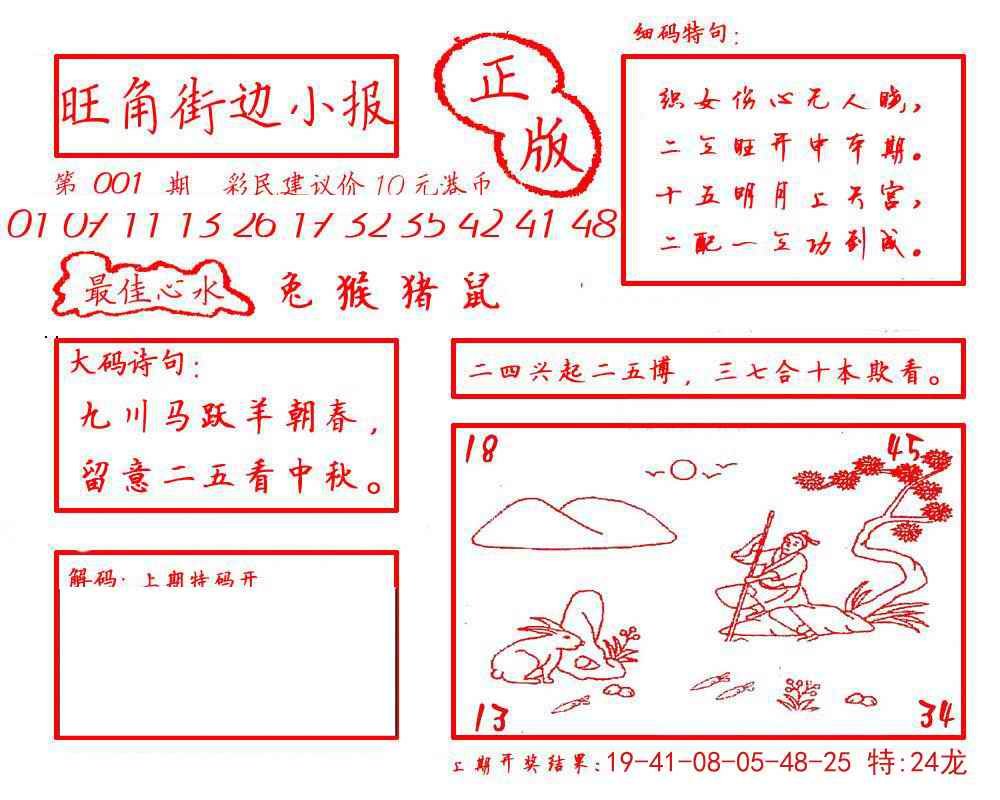 旺角街边小报
正
版
第 001 期 彩民建议价 10 元港币
01 07 11 13 26 17 32 35 42 41 48
最佳心水 兔 猴 猪 鼠
细码特句：
织女伤心无人晓，
二之旺开中本期。
十五明月上天宫，
二配一之功到成。
大码诗句：
九川马跃羊朝春，
留意二五看中秋。
二四兴起二五博，三七合十本欺看。
解码·上期特码开
18
45
13
34
上期开奖结果：19-41-08-05-48-25 特:24龙